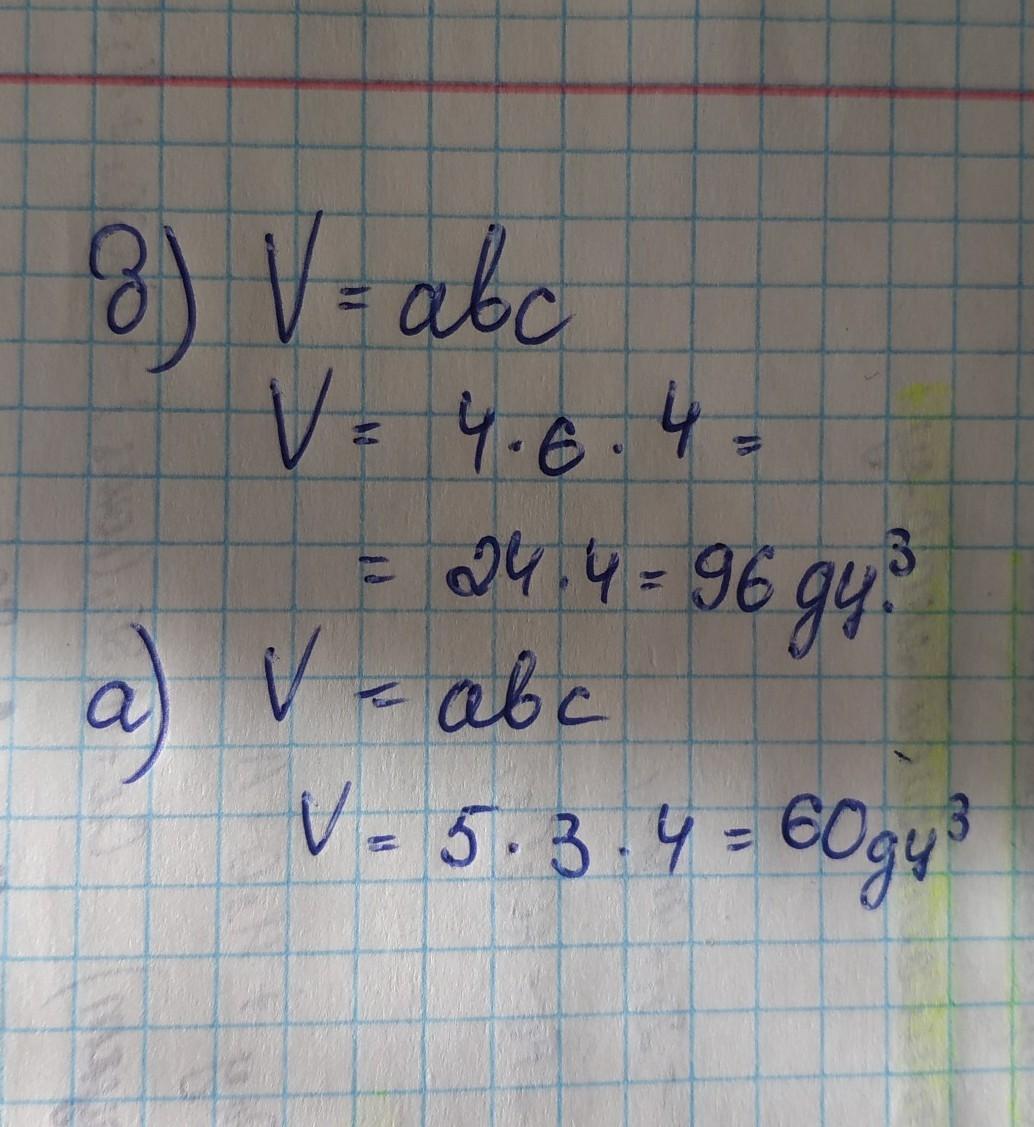 в) V = abc
V = 4 · 6 · 4 =
= 24 · 4 = 96 ду.³
а) V = abc
V = 5 · 3 · 4 = 60 ду³